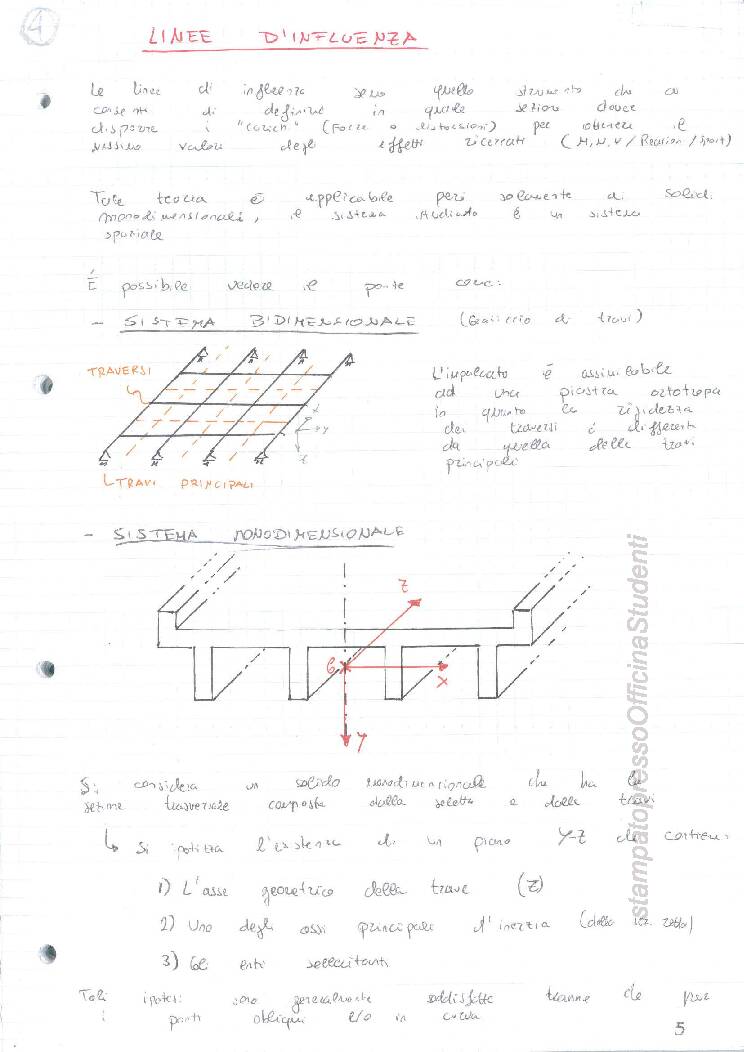 4
LINEE D'INFLUENZA
Le linee di influenza sono quello strumento che ci
consente di definire in quale sezione dover
disporre i "carichi" (Forze o distorsioni) per ottenere il
massimo valore degli effetti ricercati (M, N, V / Reazioni / Spost)
Tale teoria è applicabile però solamente ai solidi
monodimensionali, e il sistema studiato è un sistema
spaziale
È possibile vedere il ponte come:
- SISTEMA BIDIMENSIONALE (Graticcio di travi)
TRAVERSI
L'impalcato è assimilabile
ad una piastra ortotropa
in quanto la rigidezza
dei traversi è differente
da quella delle travi
principali
TRAVI PRINCIPALI
- SISTEMA MONODIMENSIONALE
Z
G
X
Y
Si considera un solido monodimensionale che ha la
sezione trasversale composta dalla soletta e dalle travi
↳ Si ipotizza l'existenza di un piano Y-Z che contiene:
1) L'asse geometrico della trave (Z)
2) Uno degli assi principali d'inerzia (della sez. retta)
3) Gli enti sollecitanti
Tali ipotesi sono generalmente soddisfatte tranne che per
i ponti obliqui e/o in curva
stampatopressoOfficinaStudenti
5